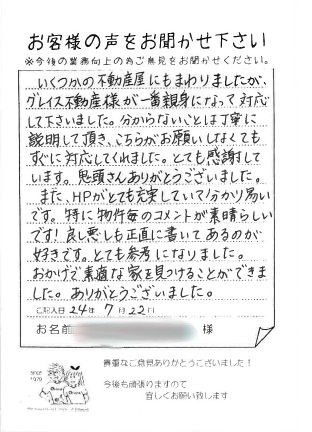 お客様の声をお聞かせ下さい
※今後の業務向上の為ご意見をお聞かせください。
いくつかの不動産屋にもまわりましたが、
グレイス不動産様が一番親身になって対応
して下さいました。分からないことは丁寧に
説明して頂き、こちらがお願いしなくても
すぐに対応してくれました。とても感謝して
います。鬼頭さんありがとうございました。
また、HPがとても充実していて分かり易い
です。特に物件毎のコメントが素晴らしい
です!良し悪しも正直に書いてあるのが
好きです。とても参考になりました。
おかげで素適な家を見つけることができま
した。ありがとうございました。
ご記入日 24年 7月 22日
お名前 様
since
1979
貴重なご意見ありがとうございました!
今後も頑張りますので
宜しくお願い致します